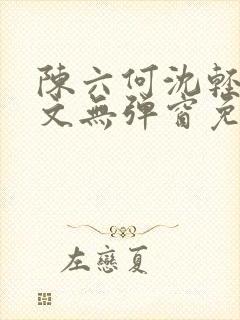 陳六何沈輕
文無彈窗免
左戀夏